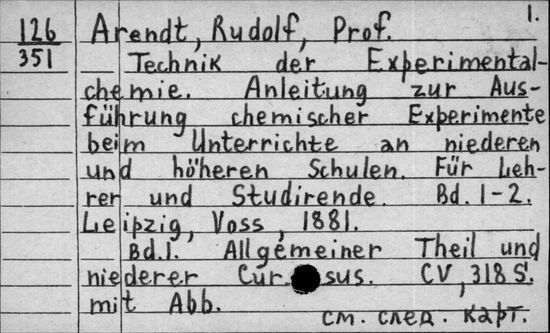 1.
126 Arendt, Rudolf, Prof.
351 Technik der Experimental-
chemie. Anleitung zur Aus-
führung chemischer Experimente
beim Unterrichte an niederen
und höheren Schulen. Für Leh-
rer und Studirende. Bd. 1-2.
Leipzig, Voss, 1881.
Bd.1. Allgemeiner Theil und
niederer Cursus. CV, 318 S.
mit Abb.
см. след. карт.